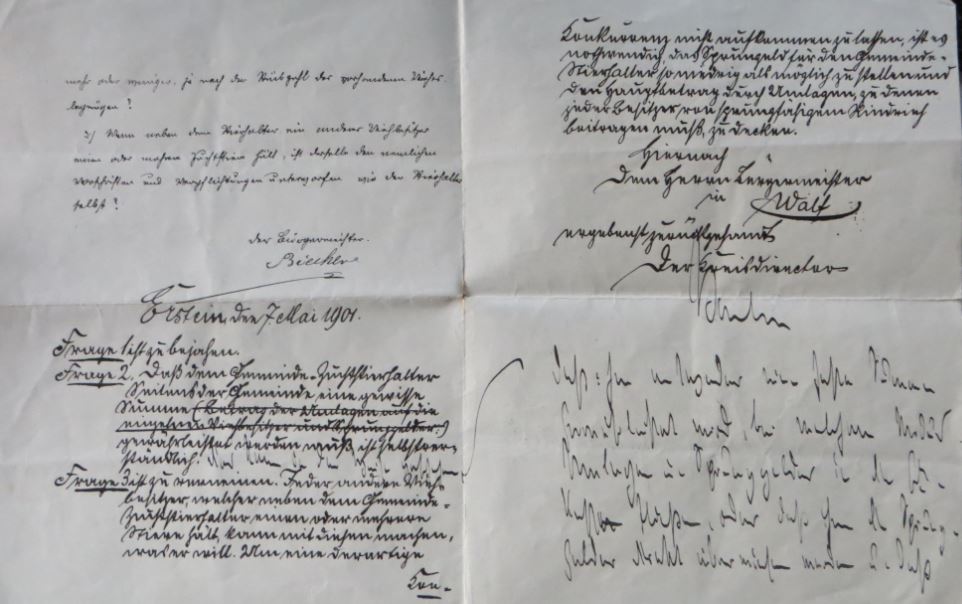 mehr oder weniger, je nach der Stückzahl des vorhandenen Viehes
begnügen?
3/ Wenn neben dem Stierhalter ein anderer Viehbesitzer
einen oder mehrere Zuchtstiere hält, ist derselbe den nemlichen
Vorschriften und Verpflichtungen unterworfen wie der Stierhalter
selbst?
der Bürgermeister.
Erstein, den 7 Mai 1901.
Frage 1 ist zu bejahen.
Frage 2. Daß dem Gemeinde-Zuchtstierhalter
Seitens der Gemeinde eine gewisse
Summe (Betrag der Umlagen auf die
einzelnen Viehbesitzer und Sprunggelder)
gewährleistet werden muß, ist selbstver-
ständlich.
Frage 3 ist zu verneinen. Jeder andere Vieh-
besitzer, welcher neben dem Gemeinde-
Zuchtstierhalter einen oder mehrere
Stiere hält, kann mit diesen machen,
was er will. Um eine derartige
Kon-
Konkurrenz nicht aufkommen zu lassen, ist es
nothwendig, das Sprunggeld für den Gemeinde-
Stierhalter so niedrig als möglich zu stellen und
den Hauptbetrag durch Umlagen, zu denen
jeder Besitzer von sprungfähigem Rindvieh
beitragen muß, zu decken.
Hiernach
Dem Herrn Bürgermeister
in Walf
ergebenst zurückgesandt
Der Kreisdirector
daß ihm entweder eine feste Summe
wird, bei welcher
Umlagen u. Sprunggelder in die
fließen, oder daß ihm die Sprung-
gelder direkt überwiesen werden u. daß